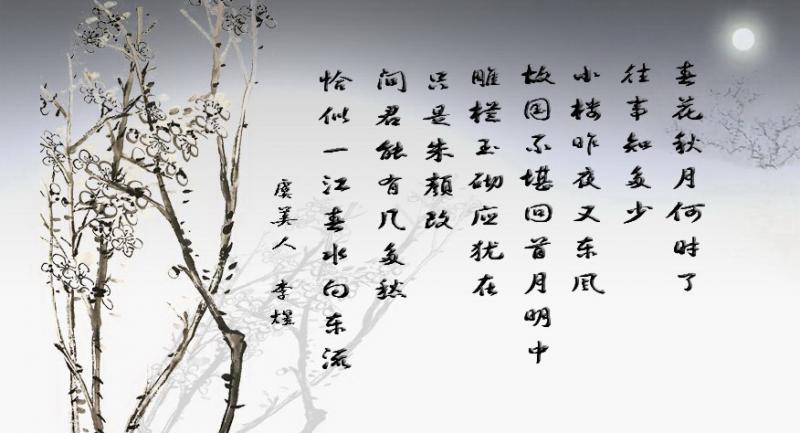 春花秋月何时了
往事知多少
小楼昨夜又东风
故国不堪回首月明中
雕栏玉砌应犹在
只是朱颜改
问君能有几多愁
恰似一江春水向东流
虞美人 李煜